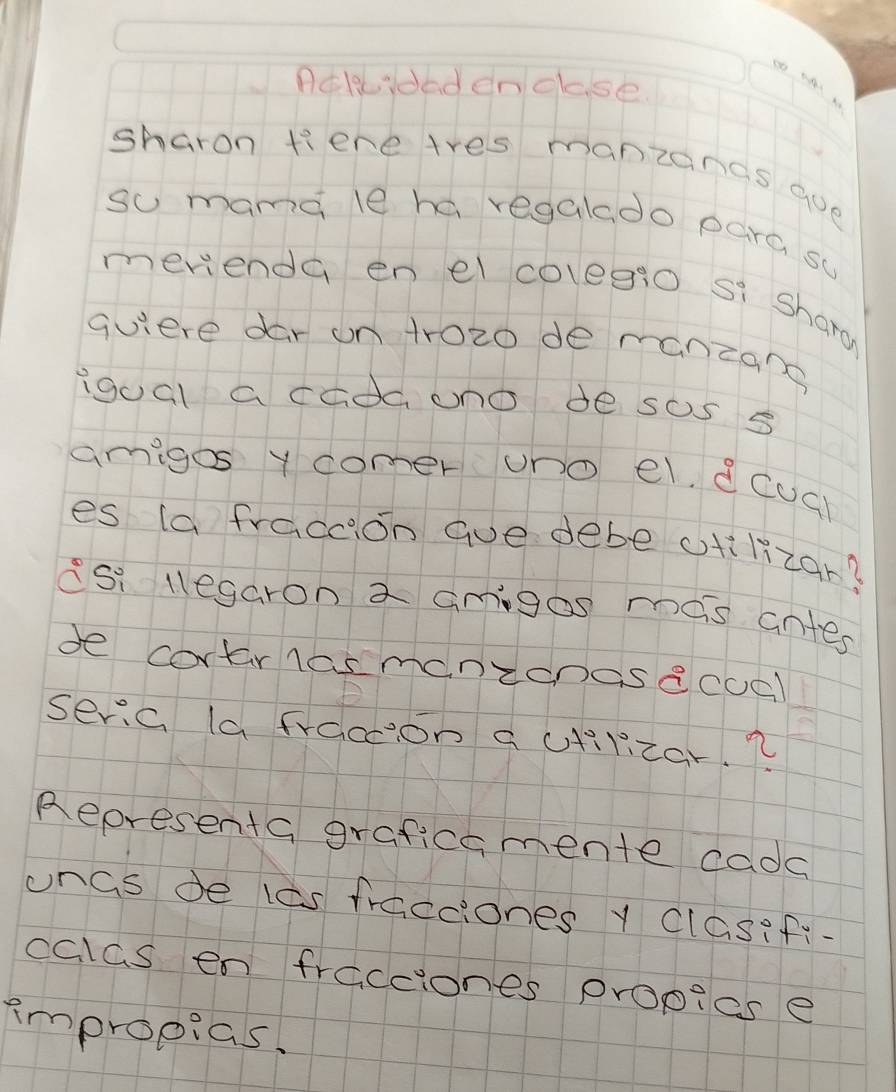 Actividad en clase
sharon tiene tres manzanas que
su mamá le ha regalado para su
merienda en el colegio si sharon
quiere dar un trozo de manzana
igual a cada uno de sus 5
amigos y comer uno el. ¿cual
es la fracción que debe utilizar?
¿si llegaron 2 amigos más antes
de cortar las manzanas ¿cual
seria la fracción a utilizar.?
Representa graficamente cada
unas de las fracciones y clasifi-
calas en fracciones propias e
impropias.